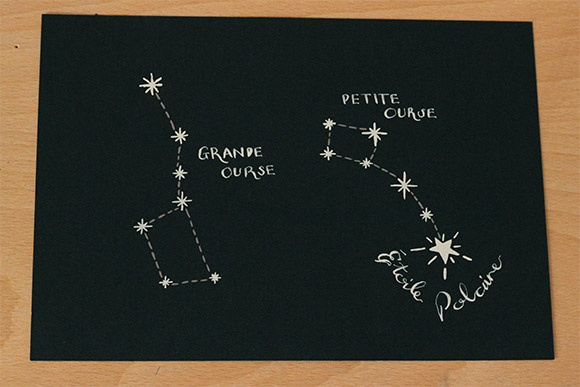 GRANDE
OURSE
PETITE
OURSE
Étoile
Polaire